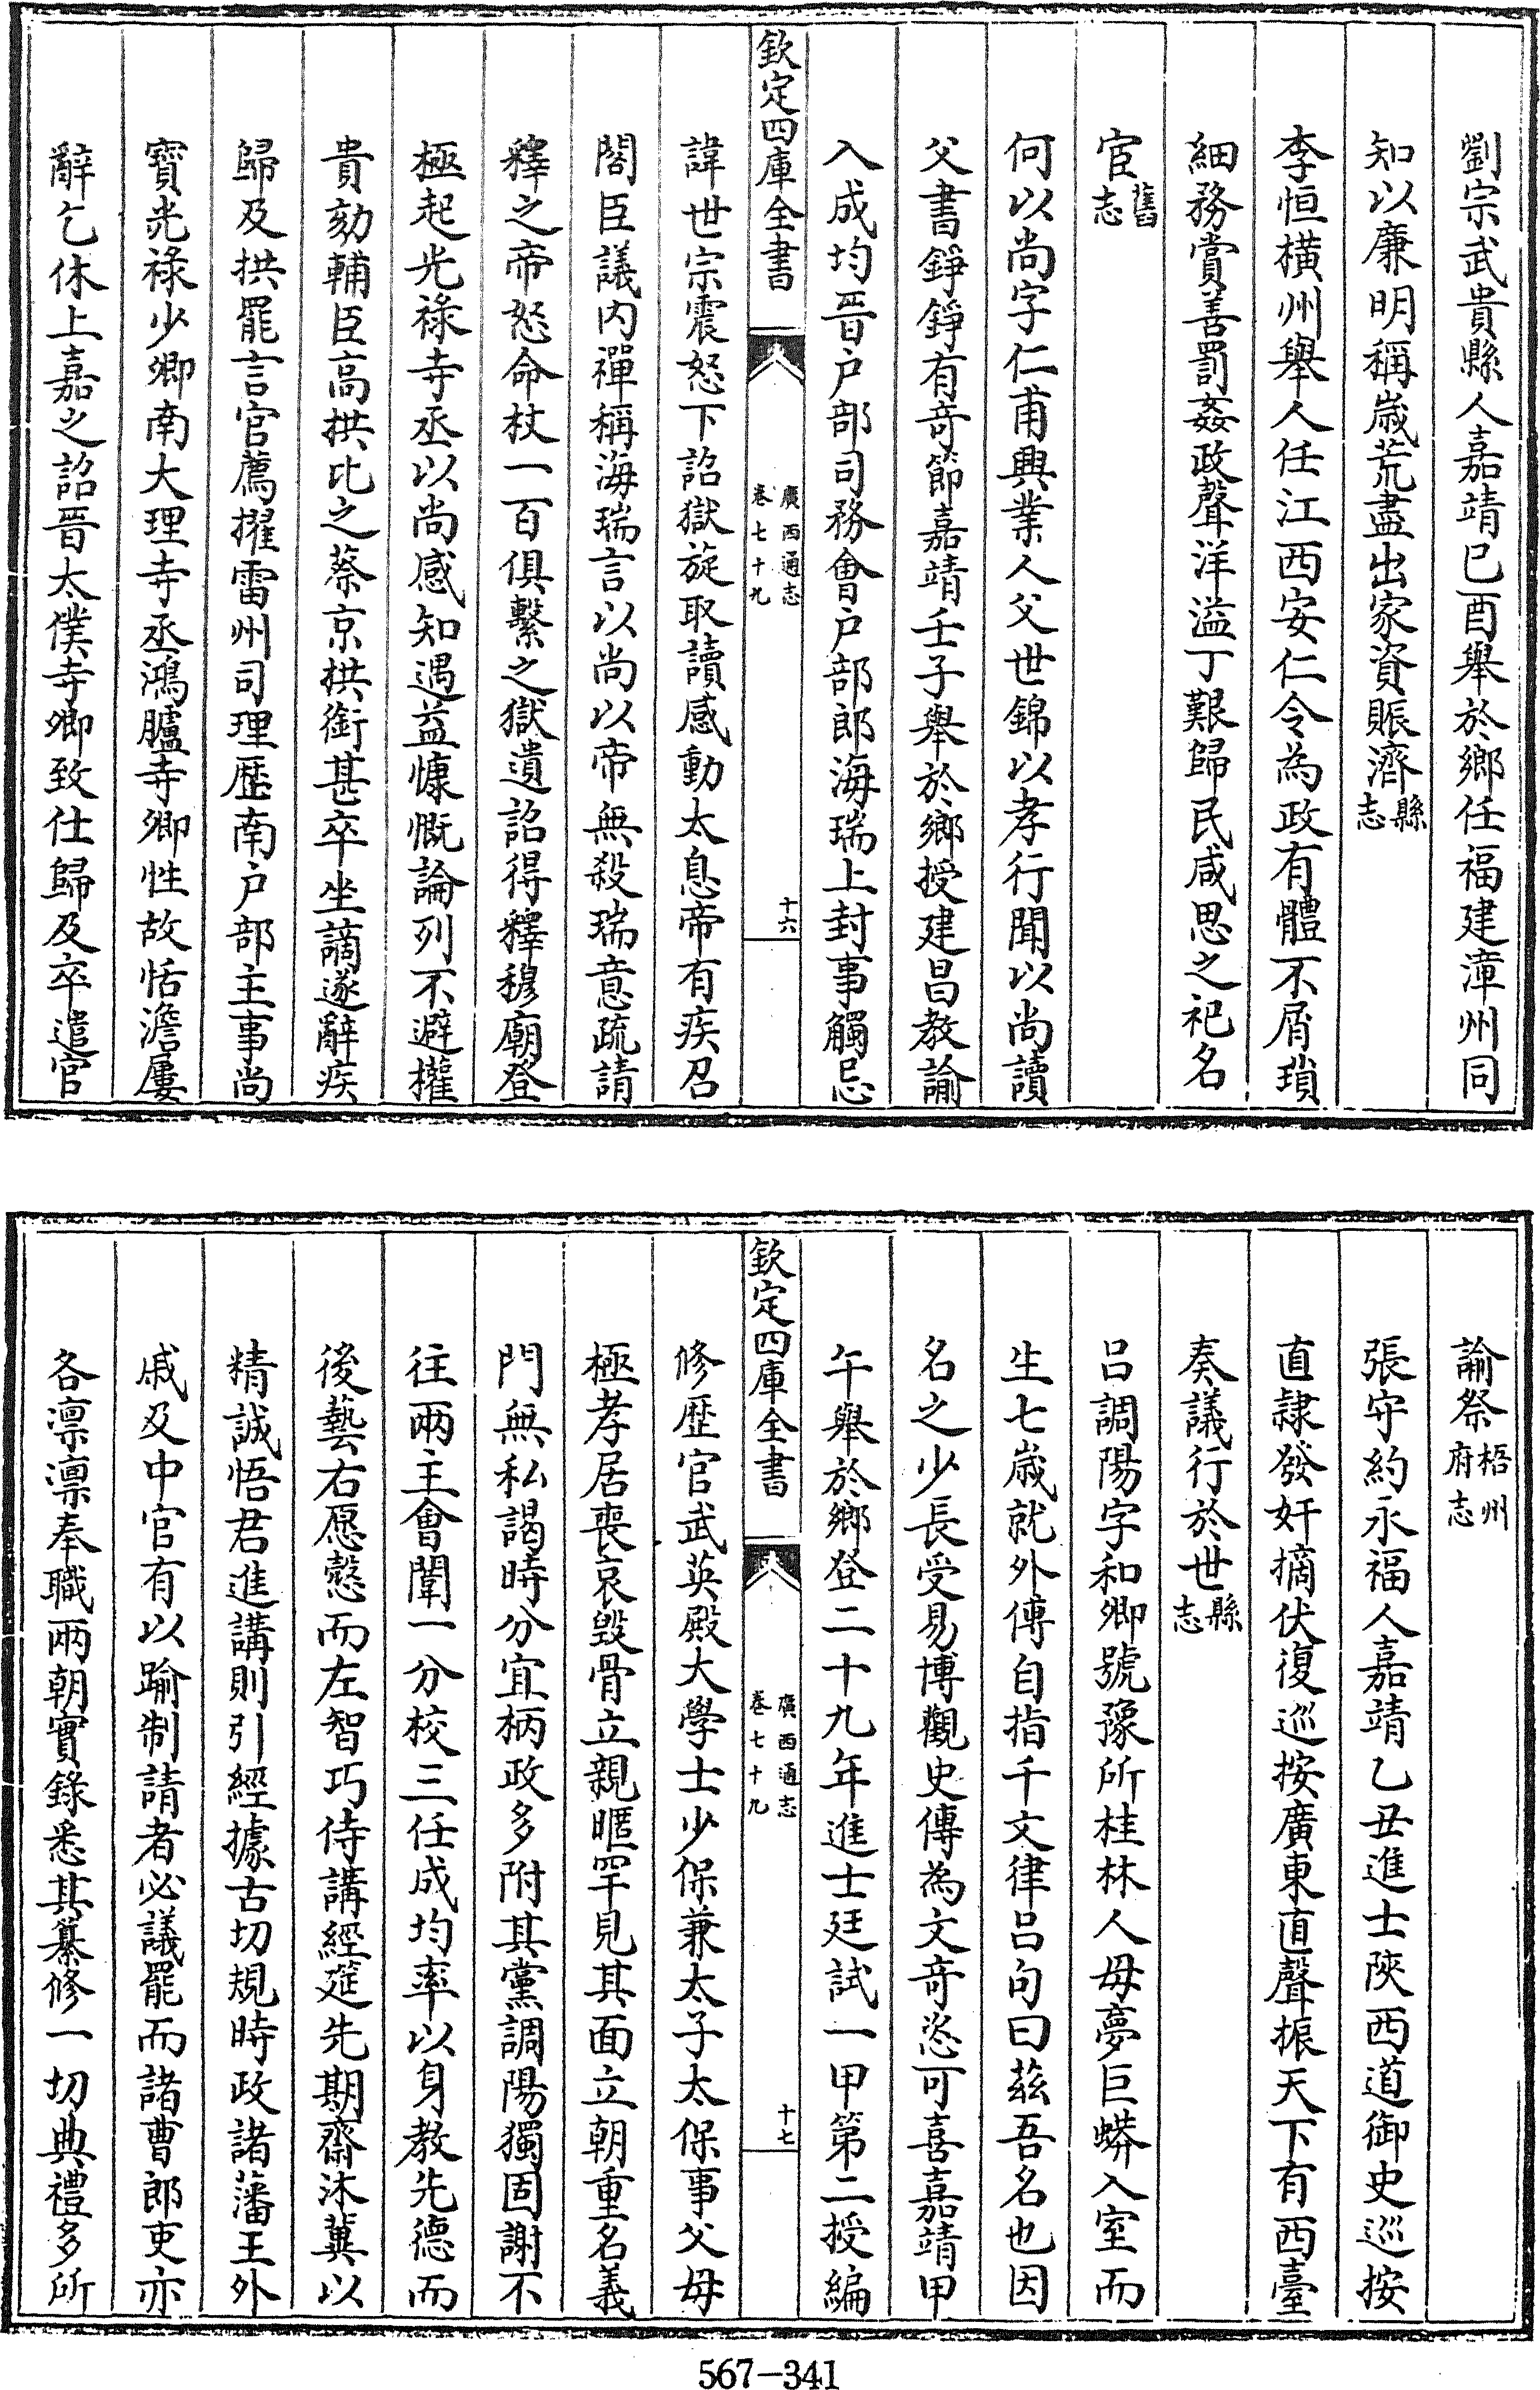 劉宗武貴縣人嘉靖己酉舉於鄉任福建漳州同
知以廉明稱歲荒盡出家資賑濟縣志
李恒橫州舉人任江西安仁令為政有體不屑瑣
細務賞善罰姦政聲洋溢丁艱歸民咸思之祀名
宦舊志
何以尚字仁甫興業人父世錦以孝行聞以尚讀
父書錚錚有奇節嘉靖壬子舉於鄉授建昌教諭
入成均晉户部司務會户部郎海瑞上封事觸忌
欽定四庫全書
廣西通志
卷七十九
十六
諱世宗震怒下詔獄旋取讀感動太息帝有疾召
閣臣議内禪稱海瑞言以尚以帝無殺瑞意疏請
釋之帝怒命杖一百俱繫之獄遺詔得釋穆廟登
極起光祿寺丞以尚感知遇益慷慨論列不避權
貴劾輔臣高拱比之蔡京拱銜甚卒坐謫遂辭疾
歸及拱罷言官薦擢雷州司理歷南户部主事尚
寳光祿少卿南大理寺丞鴻臚寺卿性故恬澹屢
辭乞休上嘉之詔晉太僕寺卿致仕歸及卒遣官
諭祭梧州府志
張守約永福人嘉靖乙丑進士陜西道御史巡按
直隸發奸摘伏復巡按廣東直聲振天下有西臺
奏議行於世縣志
吕調陽字和卿號豫所桂林人母夢巨蟒入室而
生七歲就外傅自指千文律吕句曰茲吾名也因
名之少長受易博觀史傳為文奇恣可喜嘉靖甲
午舉於鄉登二十九年進士廷試一甲第二授編
欽定四庫全書
廣西通志
卷七十九
十七
修歷官武英殿大學士少保兼太子太保事父母
極孝居喪哀毀骨立親暱罕見其面立朝重名義
門無私謁時分宜柄政多附其黨調陽獨固謝不
往兩主會闈一分校三任成均率以身教先德而
後藝右愿慤而左智巧侍講經筵先期齋沐冀以
精誠悟君進講則引經據古切規時政諸藩王外
戚及中官有以踰制請者必議罷而諸曹郎吏亦
各凜凜奉職兩朝實錄悉其纂修一切典禮多所
567-341